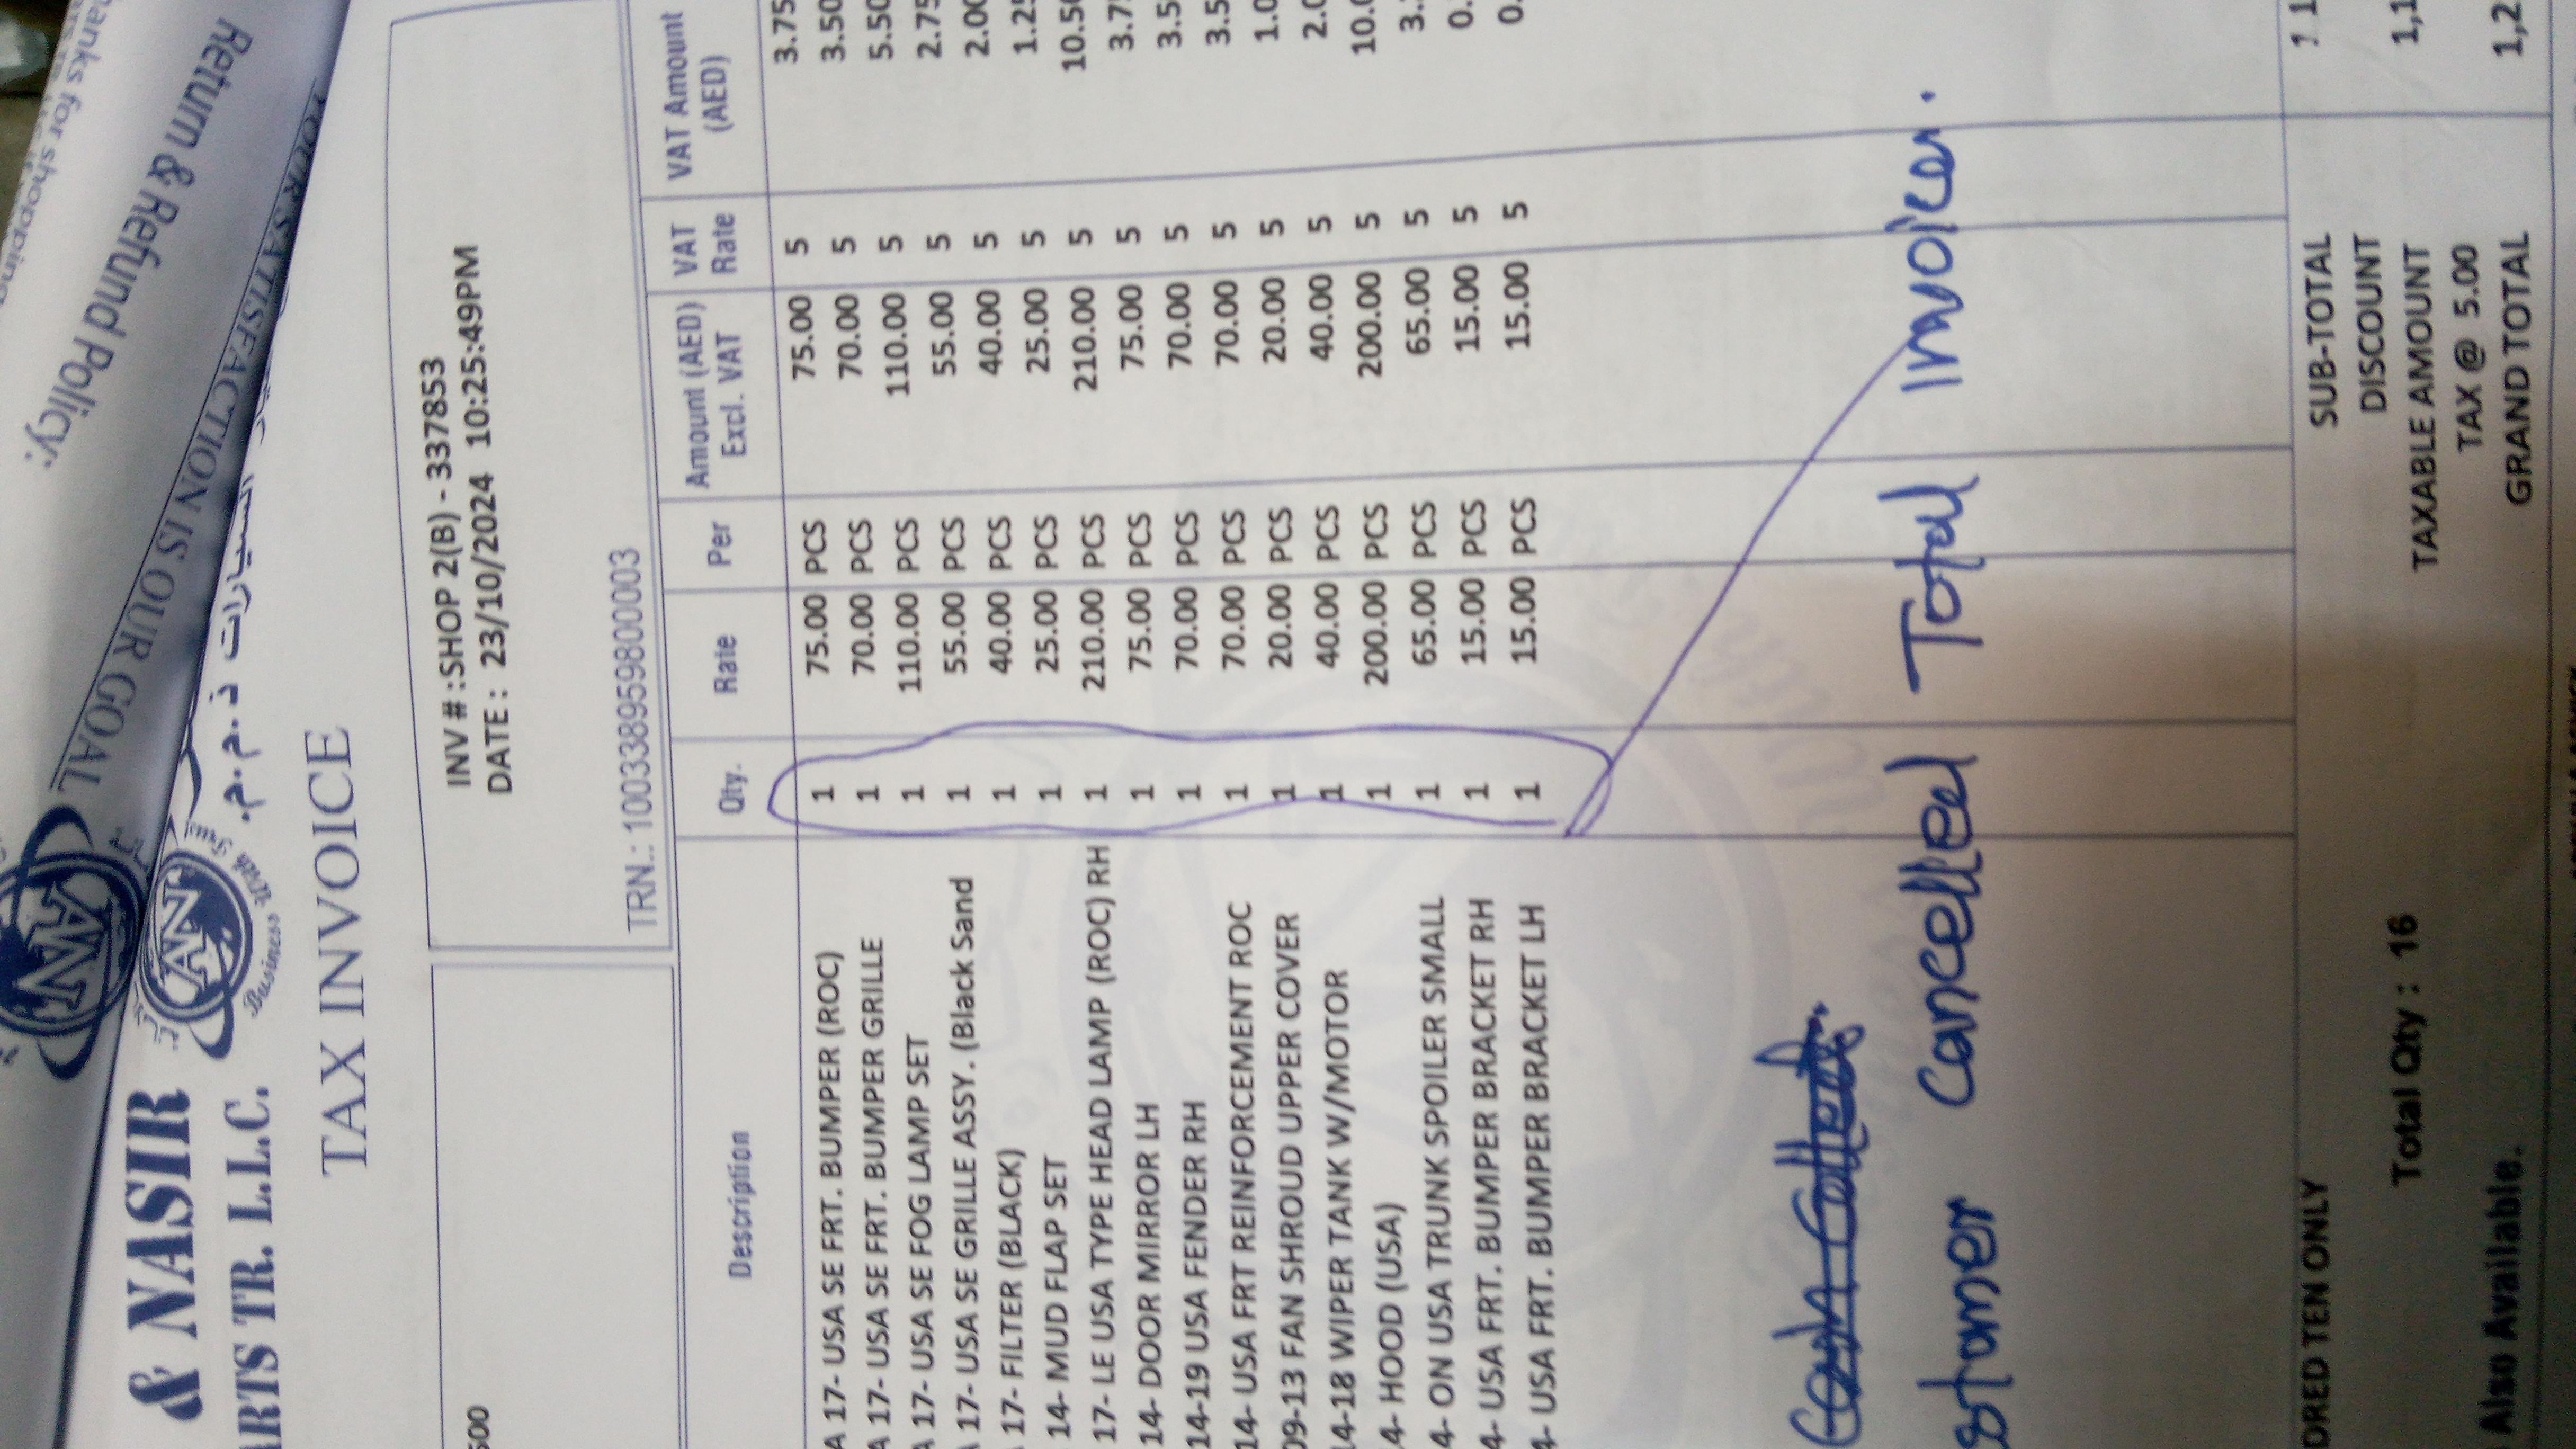 Return & Refund Policy:
YOUR SATISFACTION IS OUR GOAL
& NASIR
ARTS TR. L.L.C.
السيارات ذ.م.م.
AN
Business With Trust
TAX INVOICE
500
INV # :SHOP 2(B) - 337853
DATE : 23/10/2024 10:25:49PM
TRN.: 100338959800003
Description Qty. Rate Per Amount (AED) Excl. VAT VAT Rate VAT Amount (AED)
A 17- USA SE FRT. BUMPER (ROC) 1 75.00 PCS 75.00 5 3.75
A 17- USA SE FRT. BUMPER GRILLE 1 70.00 PCS 70.00 5 3.50
A 17- USA SE FOG LAMP SET 1 110.00 PCS 110.00 5 5.50
17- USA SE GRILLE ASSY. (Black Sand 1 55.00 PCS 55.00 5 2.75
17- FILTER (BLACK) 1 40.00 PCS 40.00 5 2.00
14- MUD FLAP SET 1 25.00 PCS 25.00 5 1.25
17- LE USA TYPE HEAD LAMP (ROC) RH 1 210.00 PCS 210.00 5 10.50
14- DOOR MIRROR LH 1 75.00 PCS 75.00 5 3.7
14-19 USA FENDER RH 1 70.00 PCS 70.00 5 3.5
14- USA FRT REINFORCEMENT ROC 1 70.00 PCS 70.00 5 3.5
09-13 FAN SHROUD UPPER COVER 1 20.00 PCS 20.00 5 1.0
14-18 WIPER TANK W/MOTOR 1 40.00 PCS 40.00 5 2.0
4- HOOD (USA) 1 200.00 PCS 200.00 5 10.0
4- ON USA TRUNK SPOILER SMALL 1 65.00 PCS 65.00 5 3.
4- USA FRT. BUMPER BRACKET RH 1 15.00 PCS 15.00 5 0.
4- USA FRT. BUMPER BRACKET LH 1 15.00 PCS 15.00 5 0.
stomer Cancelled Total Invoices.
DRED TEN ONLY
Total Qty : 16
Also Available.
SUB-TOTAL
DISCOUNT
TAXABLE AMOUNT 1,1
TAX @ 5.00
GRAND TOTAL 1,2